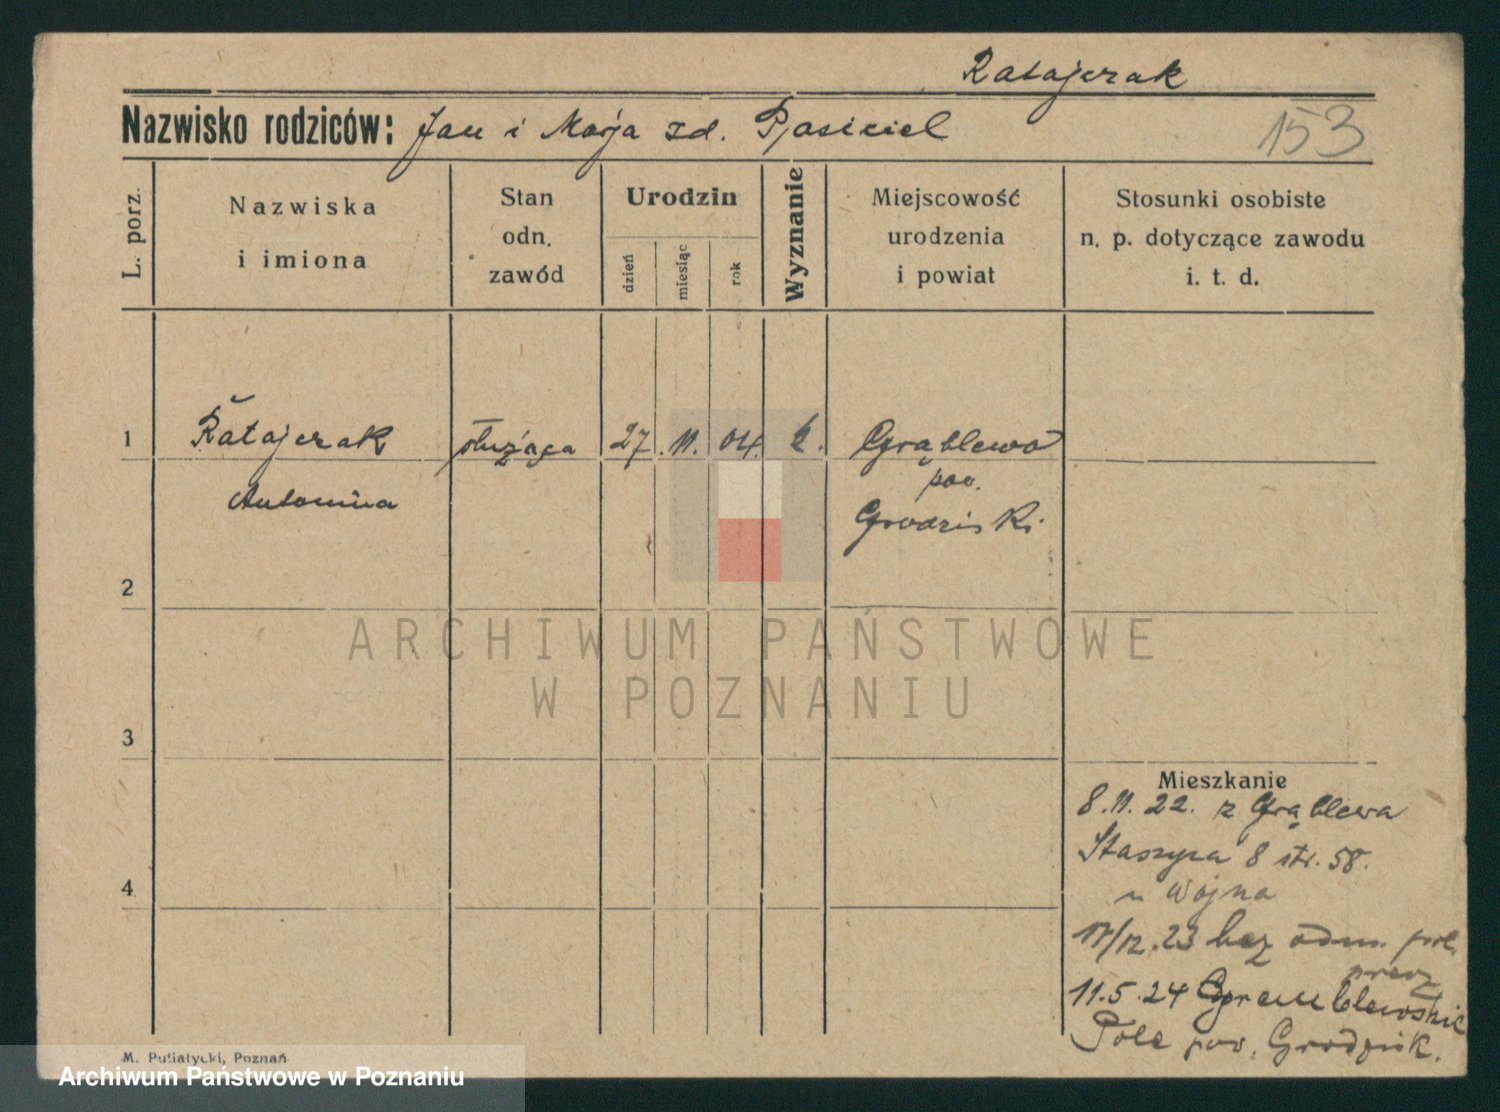 Ratajczak
Nazwisko rodziców: Jan i Marja zd. Psiciel
153
L. porz.
Nazwiska
i imiona
Stan
odn.
zawód
Urodzin
dzień
miesiąc
rok
Wyznanie
Miejscowość
urodzenia
i powiat
Stosunki osobiste
n. p. dotyczące zawodu
i. t. d.
1 Ratajczak służąca 27. 11. 04. k. Grąblewo
Antonina pow.
Grodziski
2
3
4
ARCHIWUM PAŃSTWOWE
W POZNANIU
Mieszkanie
8.11.22. z Grąblewa
Staszyca 8 str. 58.
u Wojna
17/12.23 bez odm. pol.
precz
11.5.24 Gremblewskie
Pole pow. Grodzisk.
M. Putiatycki, Poznań
Archiwum Państwowe w Poznaniu